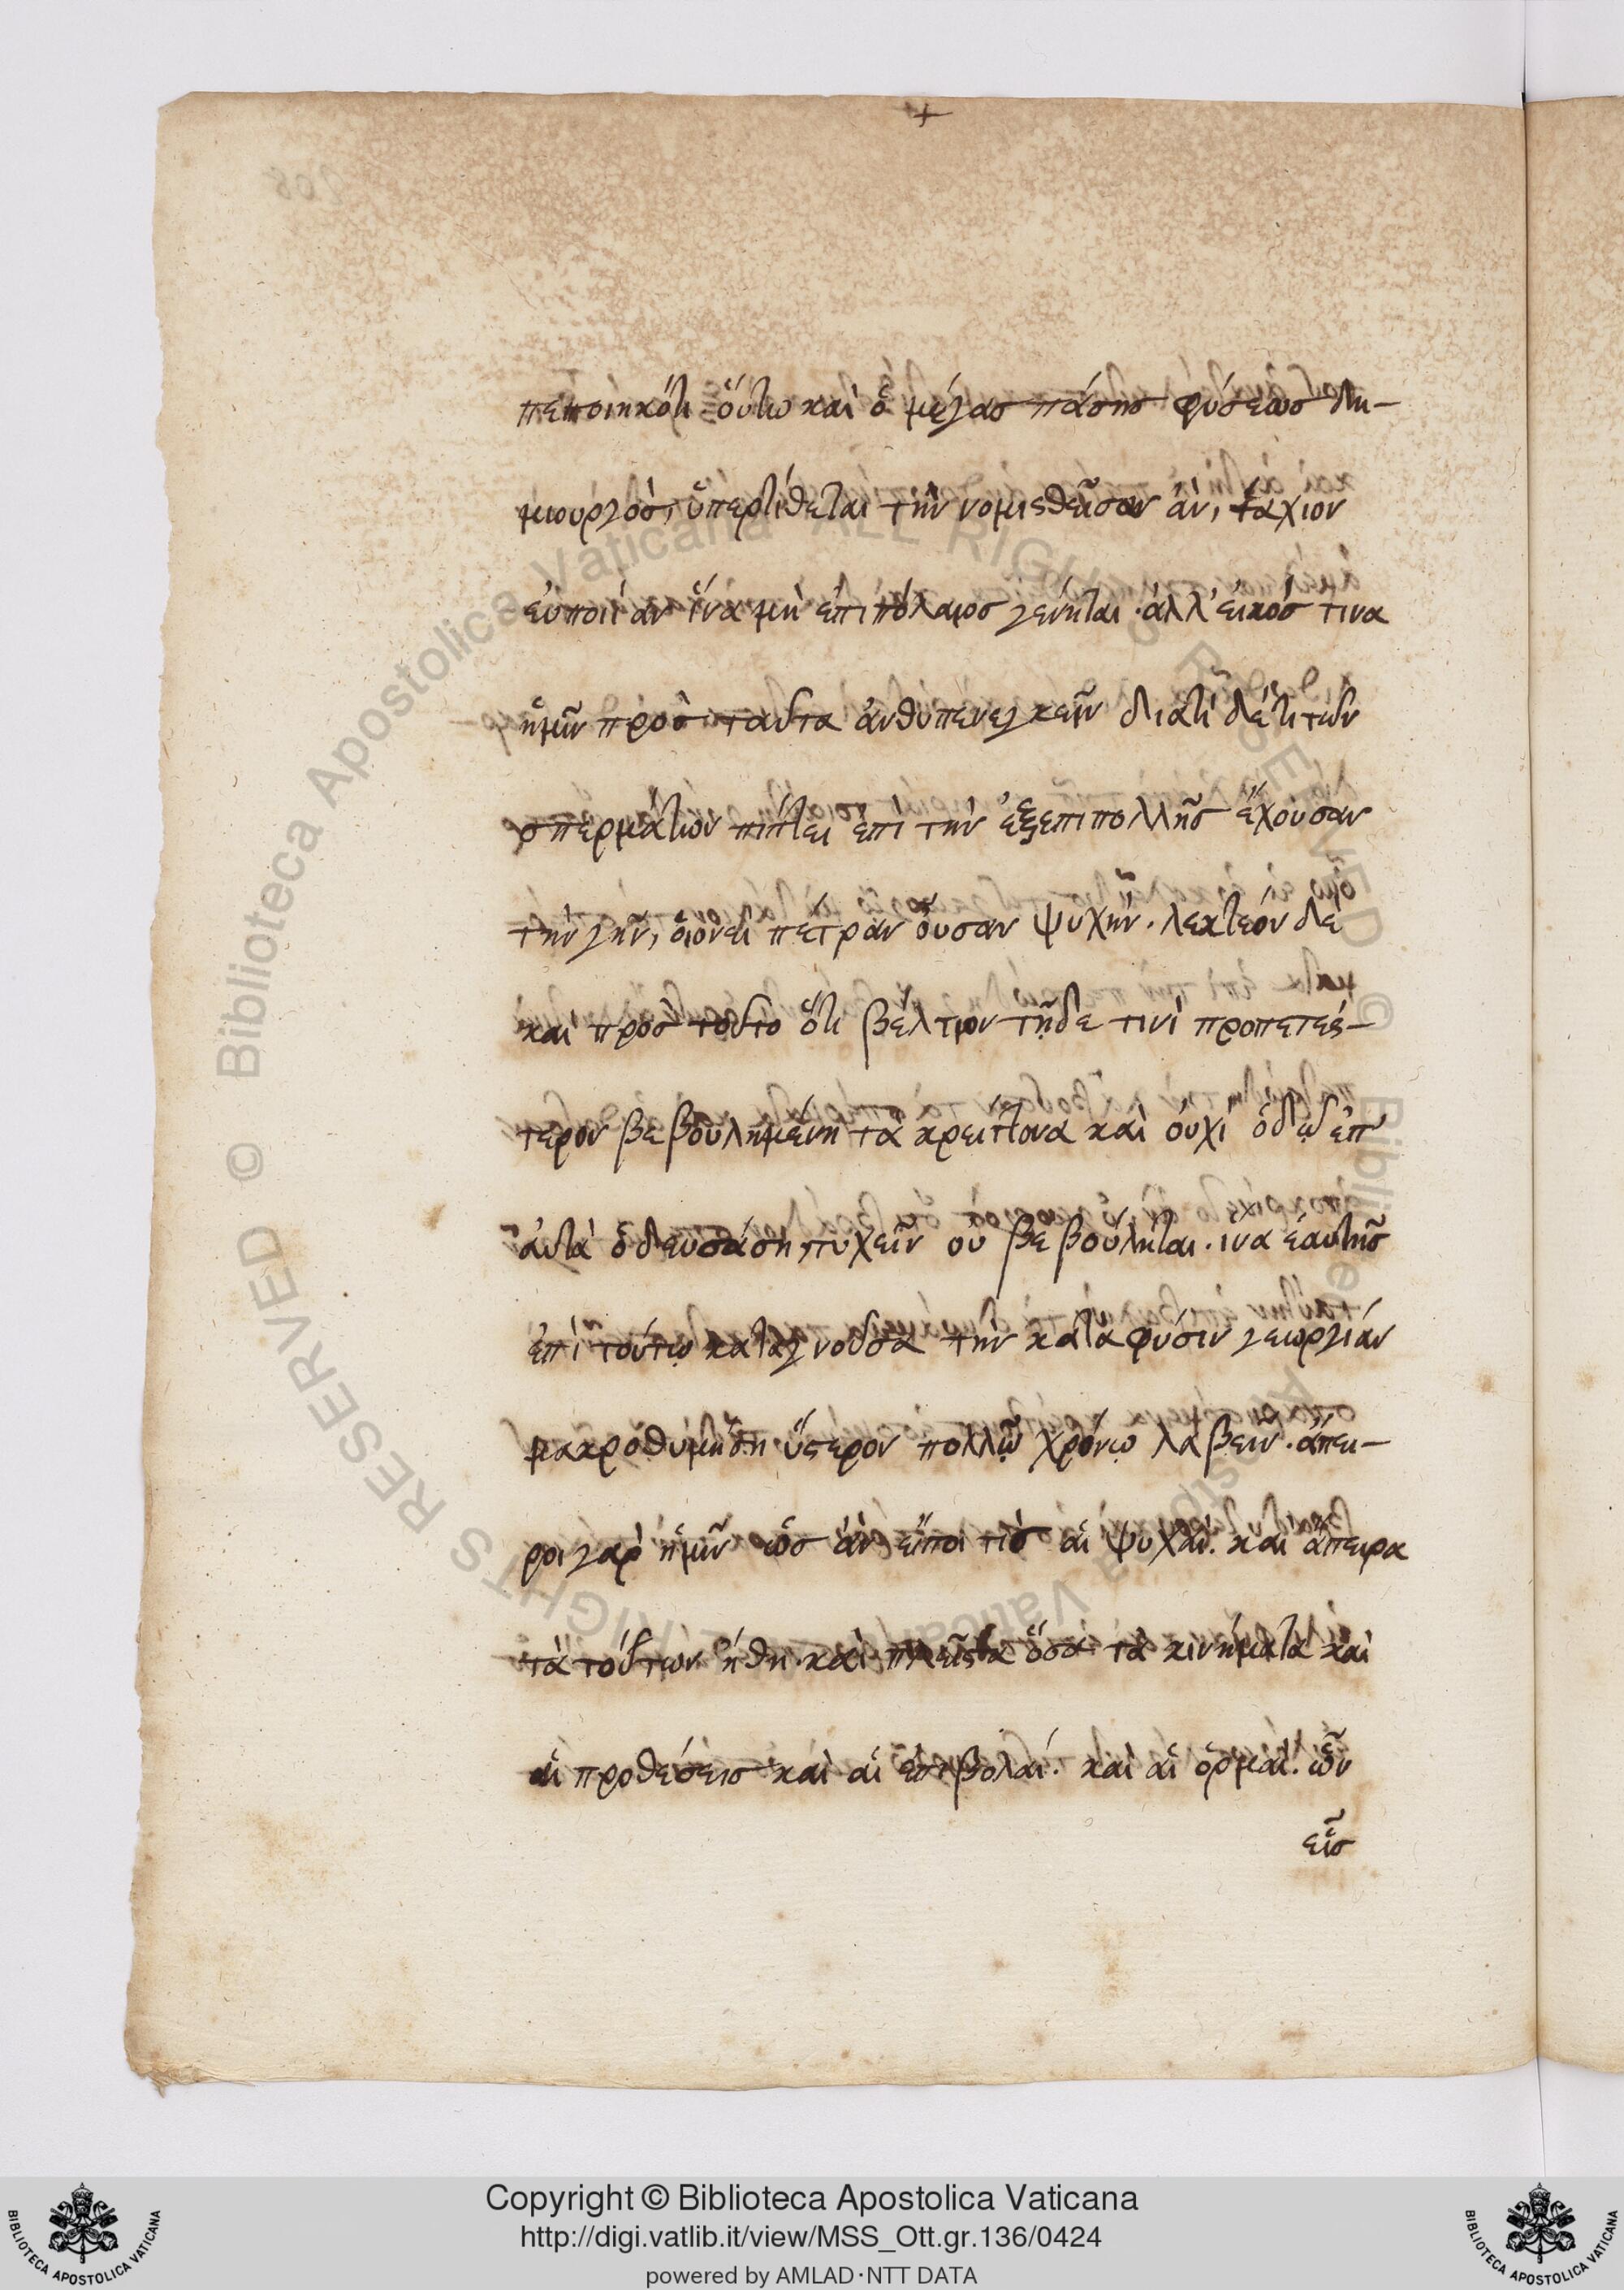 πεποιηκότι οὕτω καὶ ὁ μέγας πάσης φύσεως δη-
μιουργὸς, ὑπερτίθεται τὴν νομισθεῖσαν ἂν, τάχιον
εὐποιΐαν ἵνα μὴ ἐπιπόλαιος γένηται· ἀλλ' εἰκός τινα
ἡμῖν πρὸς ταῦτα ἀνθυπενεγκεῖν διατί δέ τι τῶν
σπερμάτων πίπτει ἐπὶ τὴν ἐξεπιπολλῆς ἔχουσαν
τὴν γῆν, οἱονεὶ πέτραν οὖσαν ψυχήν. λεκτέον δὲ
καὶ πρὸς τοῦτο ὅτι βέλτιον τῇδε τινὶ προπετέσ-
τερον βεβουλημένη τὰ κρείττονα καὶ οὐχὶ ὁδῷ ἐπ'
αὐτὰ ὁδευσάσῃ, τυχεῖν οὐ βεβούληται. ἵνα ἑαυτῆς
ἐπὶ τούτῳ καταγνοῦσα τὴν κατα φύσιν γεωργίαν
μακροθυμήσῃ ὕστερον πολλῷ χρόνῳ λαβεῖν. ἄπει-
ροι γὰρ ἡμῖν ὡς ἂν εἴποι τὶς αἱ ψυχαί. καὶ ἄπειρα
τὰ τούτων ἤθη. καὶ πλεῖστα ὅσα τὰ κινήματα καὶ
αἱ προθέσεις καὶ αἱ ἐπιβολαί. καὶ αἱ ὁρμαί. ὧν
εἷς
Copyright © Biblioteca Apostolica Vaticana
http://digi.vatlib.it/view/MSS_Ott.gr.136/0424
powered by AMLAD·NTT DATA